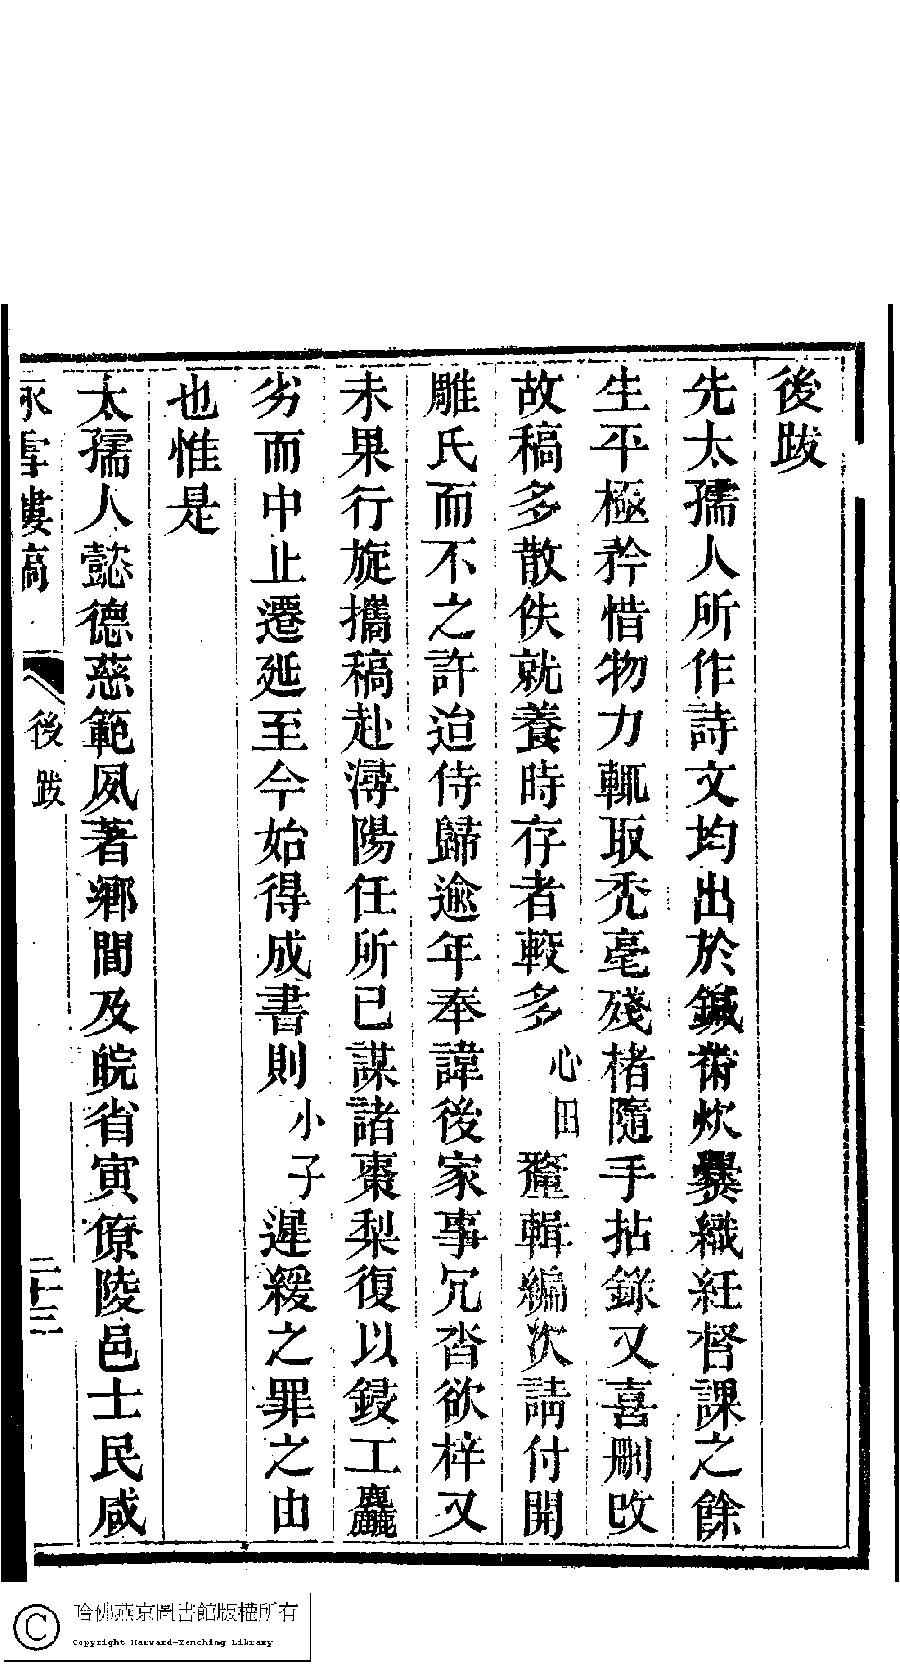 後跋
先太孺人所作詩文均出於鍼黹炊爨織紝督課之餘
生平極矜惜物力輒取禿毫殘楮隨手拈錄又喜刪改
故稿多散佚就養時存者較多心田釐輯編次請付開
雕氏而不之許迨侍歸逾年奉諱後家事冗沓欲梓又
未果行旋攜稿赴潯陽任所已謀諸棗梨復以鋟工麤
劣而中止遷延至今始得成書則小子遲緩之罪之由
也惟是
太孺人懿德慈範夙著鄉閭及皖省寅僚陵邑士民咸
冰雪樓稿
後跋
二十三
哈佛燕京圖書館版權所有
Copyright Harvard-Yenching Library